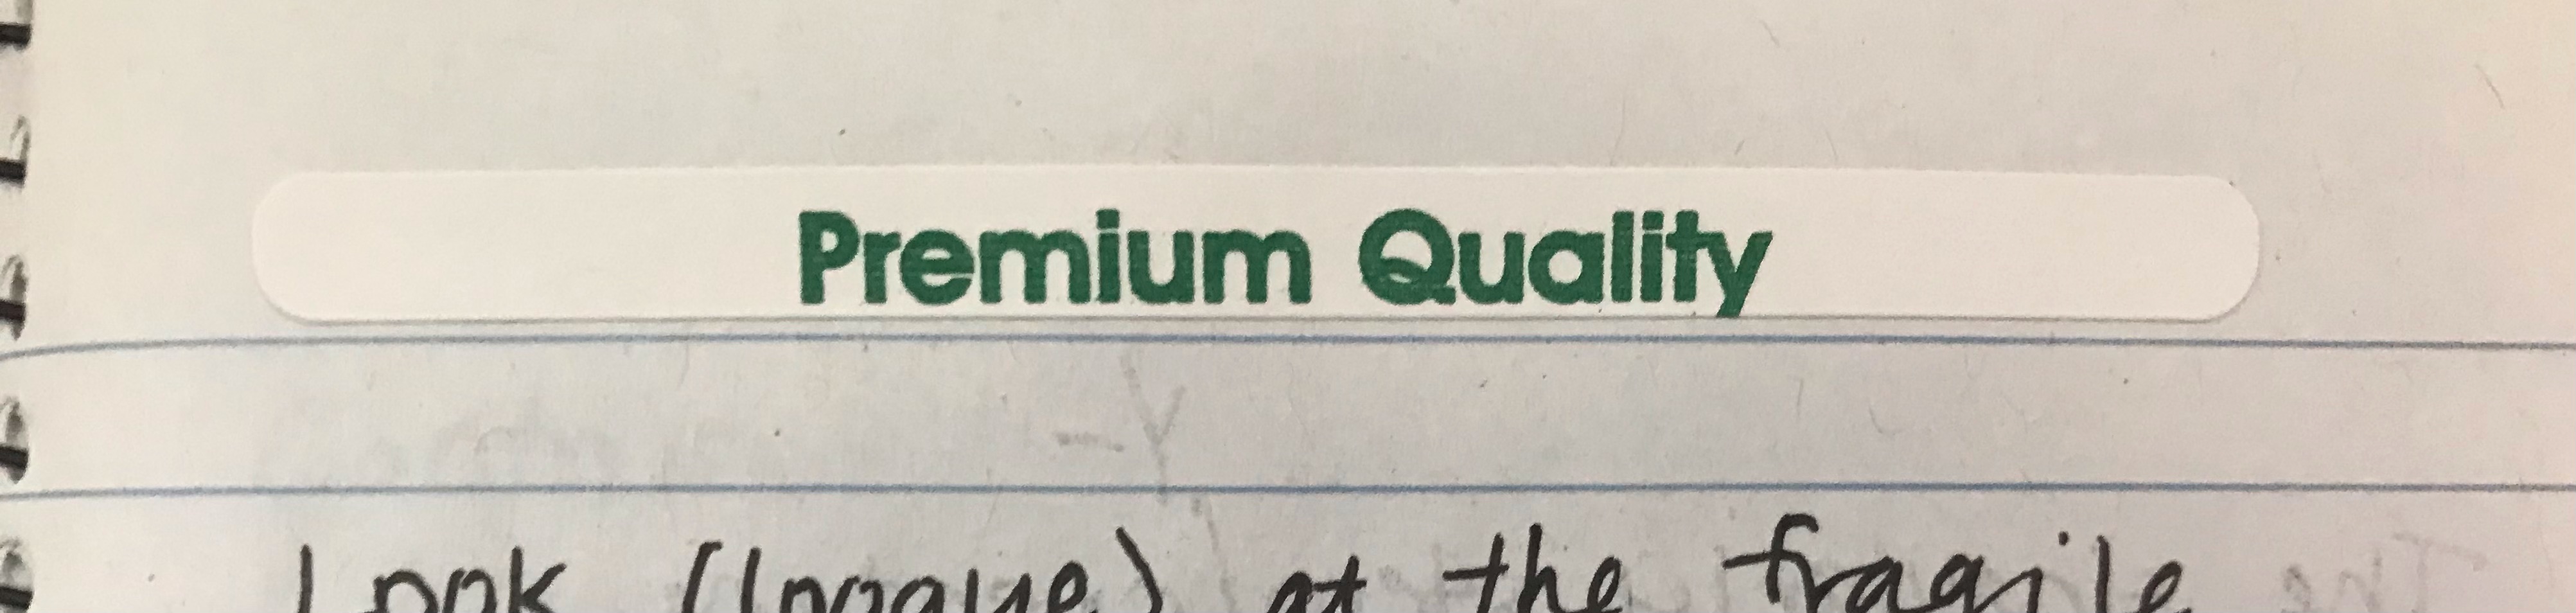 Premium Quality
Look (longue) at the fragile